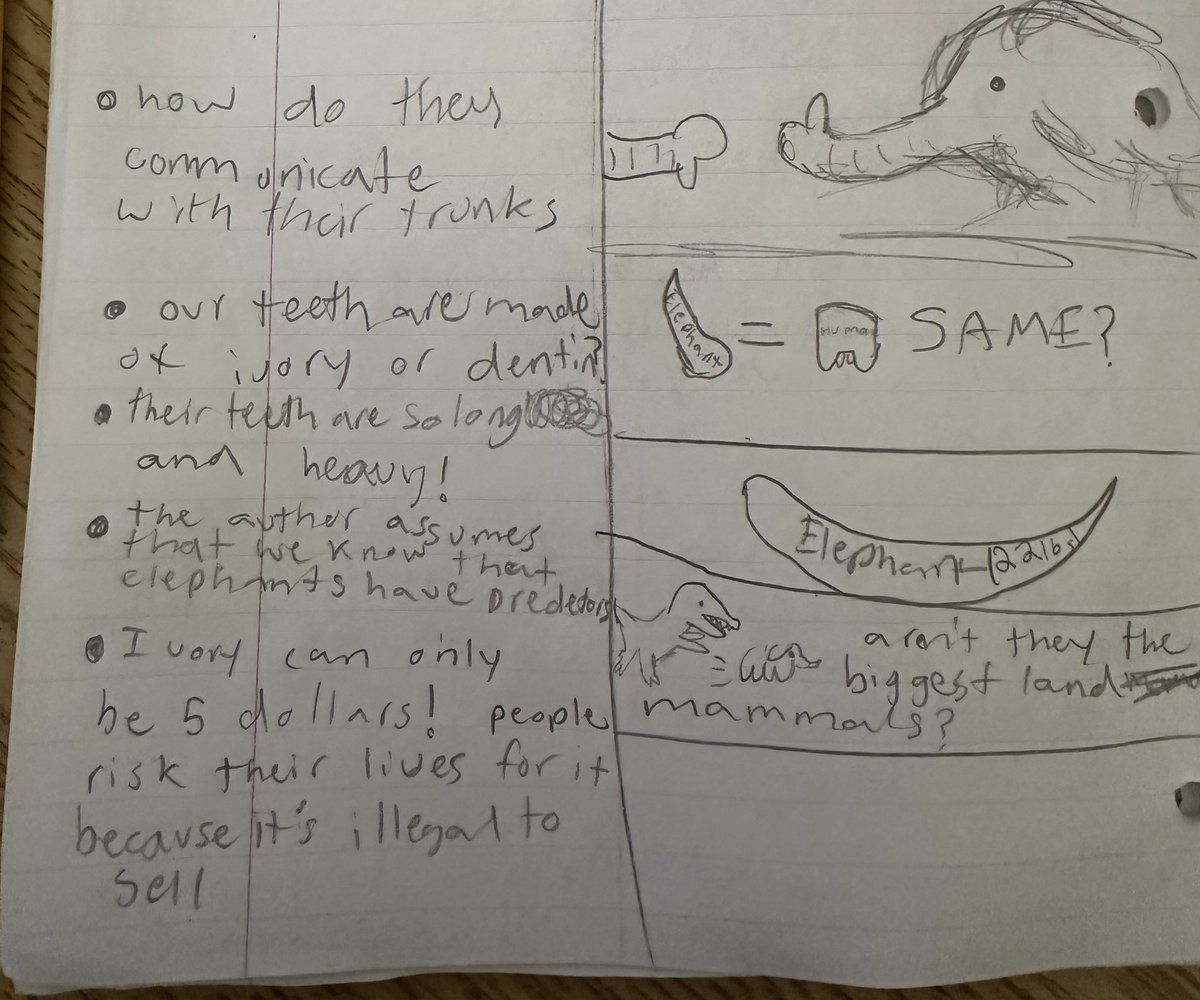 how do they
communicate
with their trunks
our teeth are made
of ivory or dentin?
their teeth are so long
and heavy!
the author assumes
that we know that
elephants have predetors
Ivory can only
be 5 dollars! people
risk their lives for it
because it's illegal to
sell
Elephant = Human SAME?
Elephant 22lbs
=
aren't they the
biggest land
mammals?